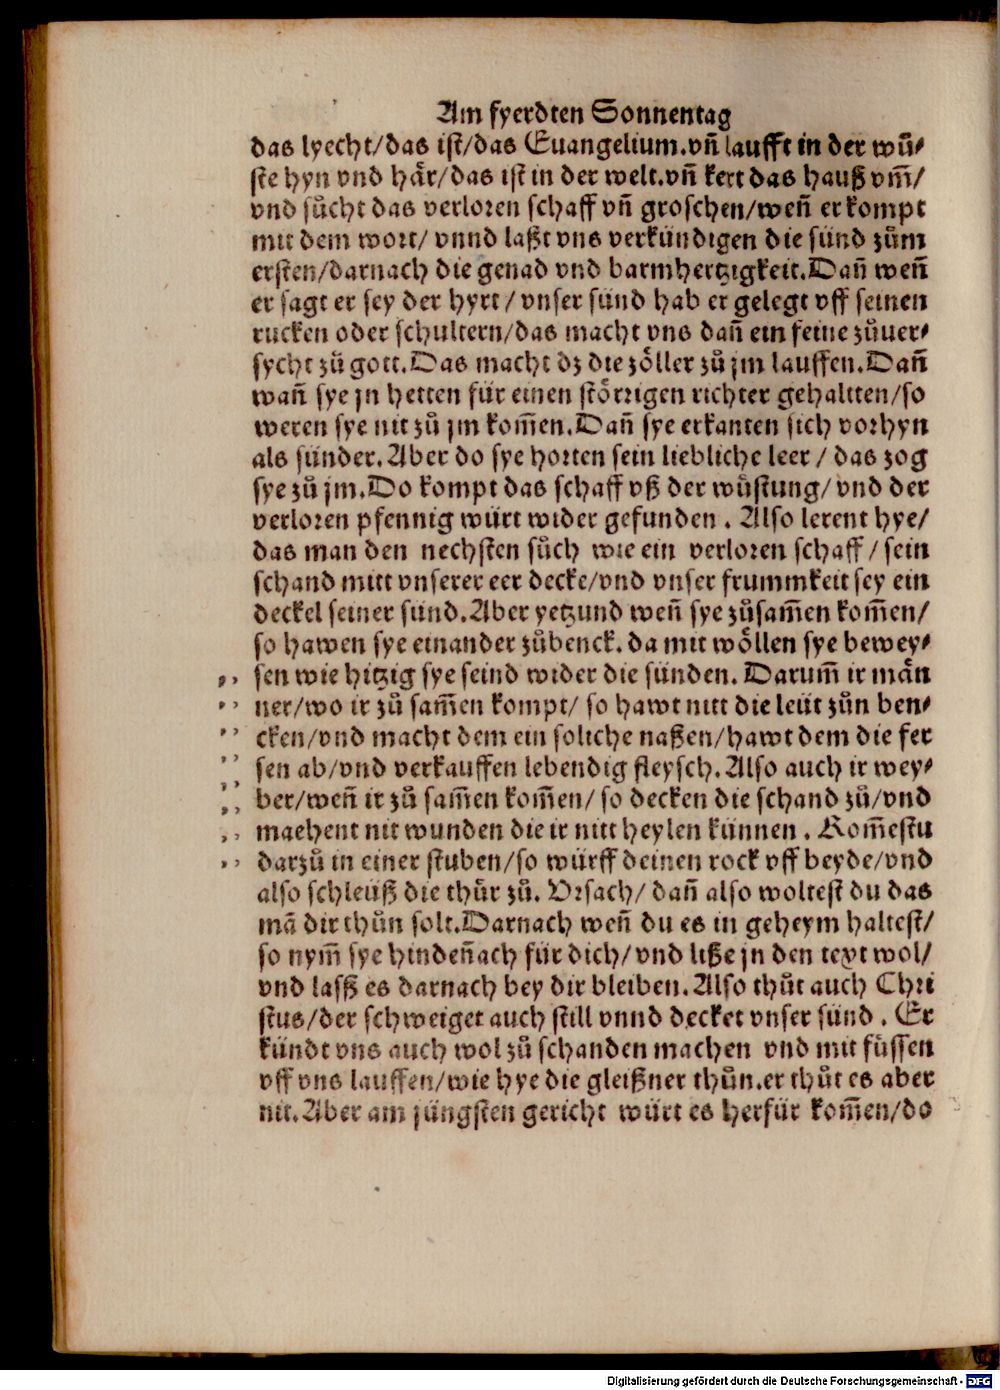 Am fyerdten Sonnentag
das lyecht/das ist/das Euangelium.vn̄ laufft in der wuͤ⸗
ste hyn vnd haͤr/das ist in der welt.vn̄ kert das hauß vm̄/
vnd suͤcht das verloren schaff vn̄ groschen/wen̄ er kompt
mit dem wort/ vnnd laßt vns verkündigen die sünd zům
ersten/darnach die genad vnd barmhertzigkeit.Dan̄ wen̄
er sagt er sey der hyrt / vnser sünd hab er gelegt vff seinen
rucken oder schultern/das macht vns dan̄ ein feine zůuer⸗
sycht zů gott.Das macht dz die zoͤller zů jm lauffen.Dan̄
wan̄ sye jn hetten für einen stoͤrrigen richter gehaltten/so
weren sye nit zů jm kom̄en.Dan̄ sye erkanten sich vorhyn
als sünder.Aber do sye horten sein liebliche leer / das zog
sye zů jm.Do kompt das schaff vß der wuͤstung/ vnd der
verloren pfennig würt wider gefunden . Also lerent hye/
das man den nechsten suͤch wie ein verloren schaff / sein
schand mitt vnserer eer decke/vnd vnser frummkeit sey ein
deckel seiner sünd.Aber yetzund wen̄ sye zůsam̄en kom̄en/
so hawen sye einander zůbenck. da mit woͤllen sye bewey⸗
sen wie hitzig sye seind wider die sünden. Darum̄ ir maͤn
ner/wo ir zů sam̄en kompt/ so hawt nitt die leüt zůn ben⸗
cken/vnd macht dem ein soliche naßen/hawt dem die fer
sen ab/vnd verkauffen lebendig fleysch.Also auch ir wey⸗
ber/wen̄ ir zů sam̄en kom̄en/ so decken die schand zů/vnd
machent nit wunden die ir nitt heylen künnen . Kom̄estu
darzů in einer stuben/so würff deinen rock vff beyde/vnd
also schleüß die thür zů. Vrsach/ dan̄ also woltest du das
mā dir thůn solt.Darnach wen̄ du es in geheym haltest/
so nym̄ sye hinden̄ach für dich/ vnd liße jn den text wol/
vnd lasß es darnach bey dir bleiben.Also thůt auch Chri
stus/der schweiget auch still vnnd decket vnser sünd . Er
kündt vns auch wol zů schanden machen vnd mit fuͤssen
vff vns lauffen/wie hye die gleißner thůn.er thůt es aber
nit.Aber am jüngsten gericht würt es herfür kom̄en/do
Digitalisierung gefördert durch die Deutsche Forschungsgemeinschaft - DFG